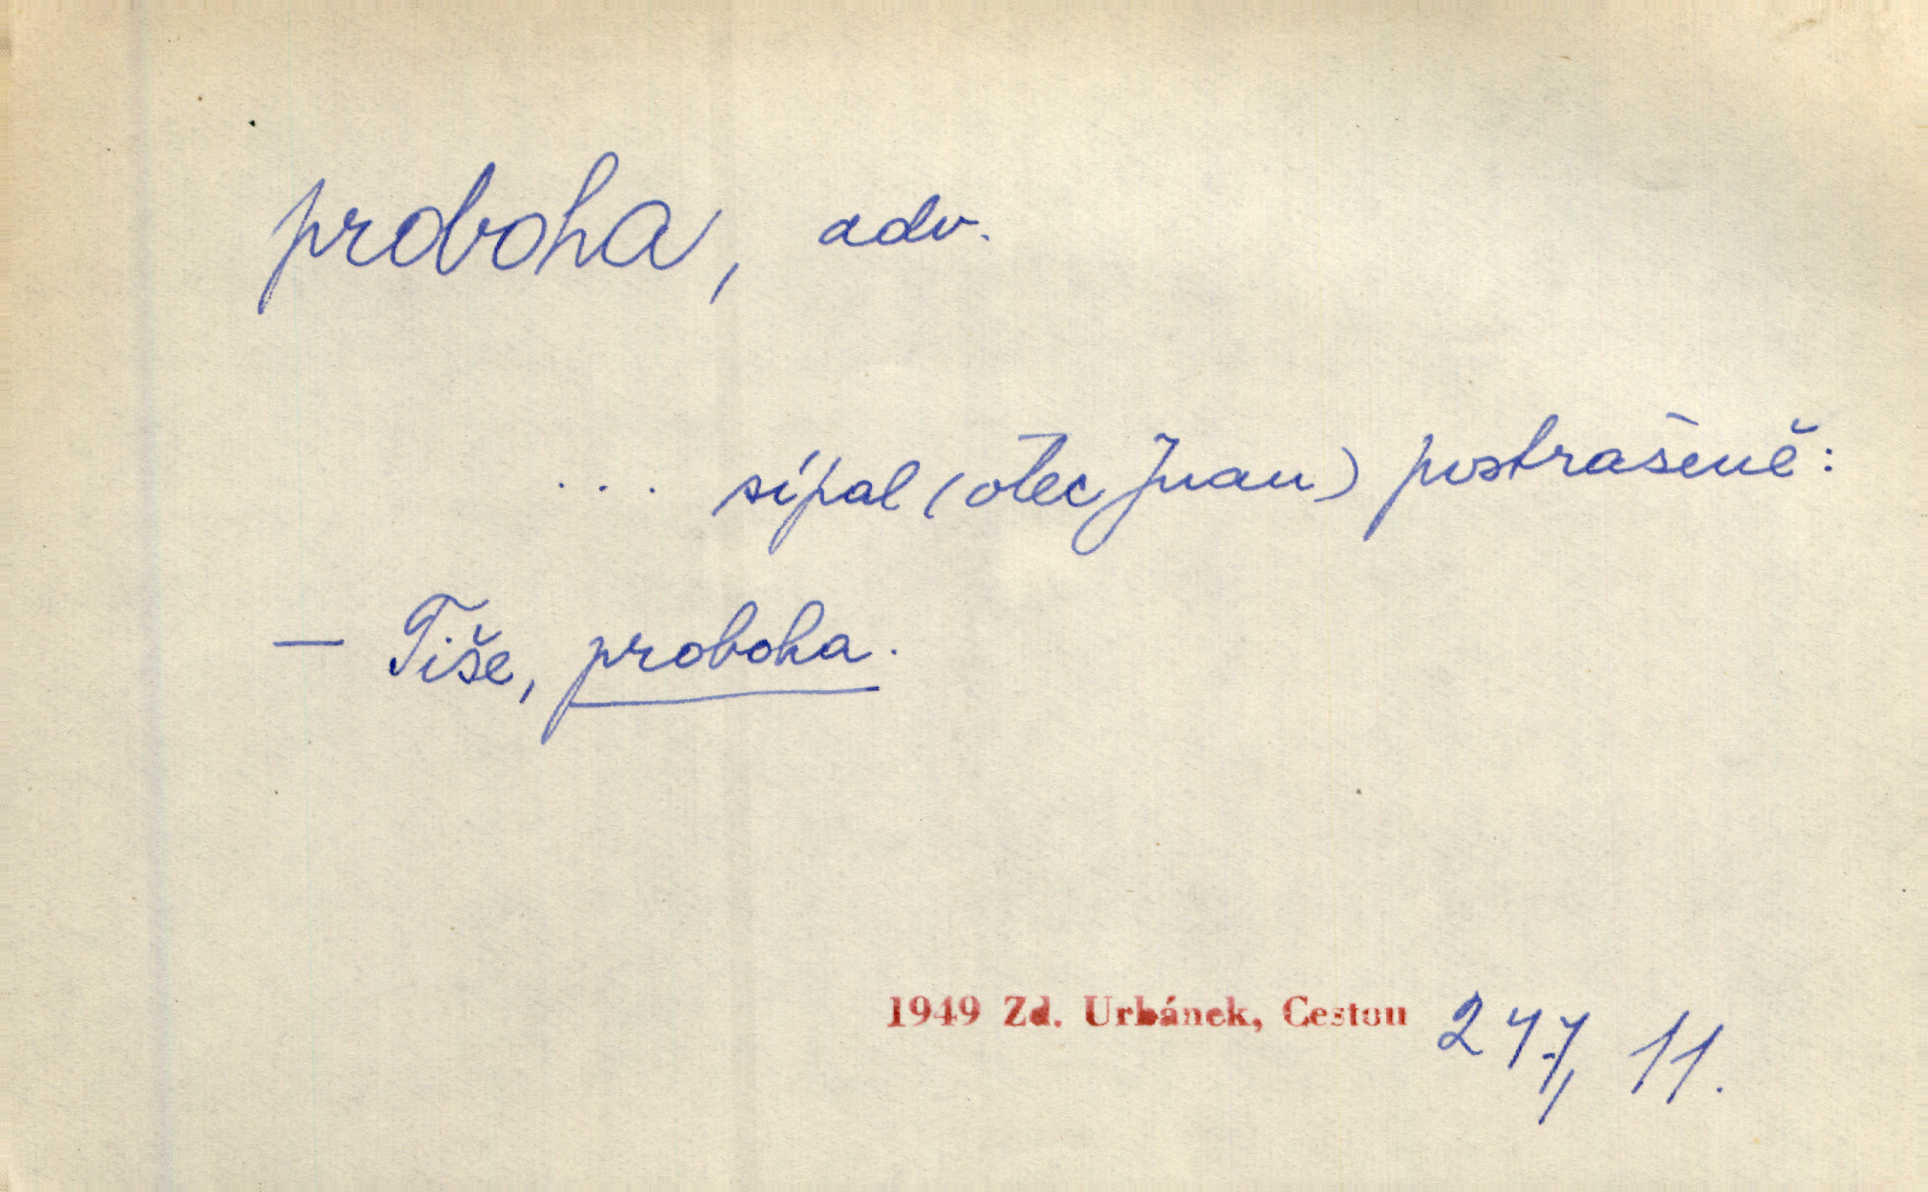 proboha, adv.
... sípal (otec Juan) postrašeně:
— Tiše, proboha.
1949 Zd. Urbánek, Cestou 247, 11.